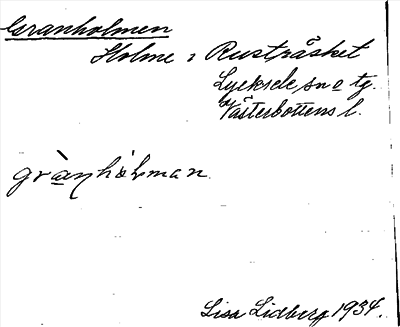 Granholmen
Holme i Rusträsket
Lycksele sn o tg.
Västerbottens l.
Lisa Lidberg 1934.